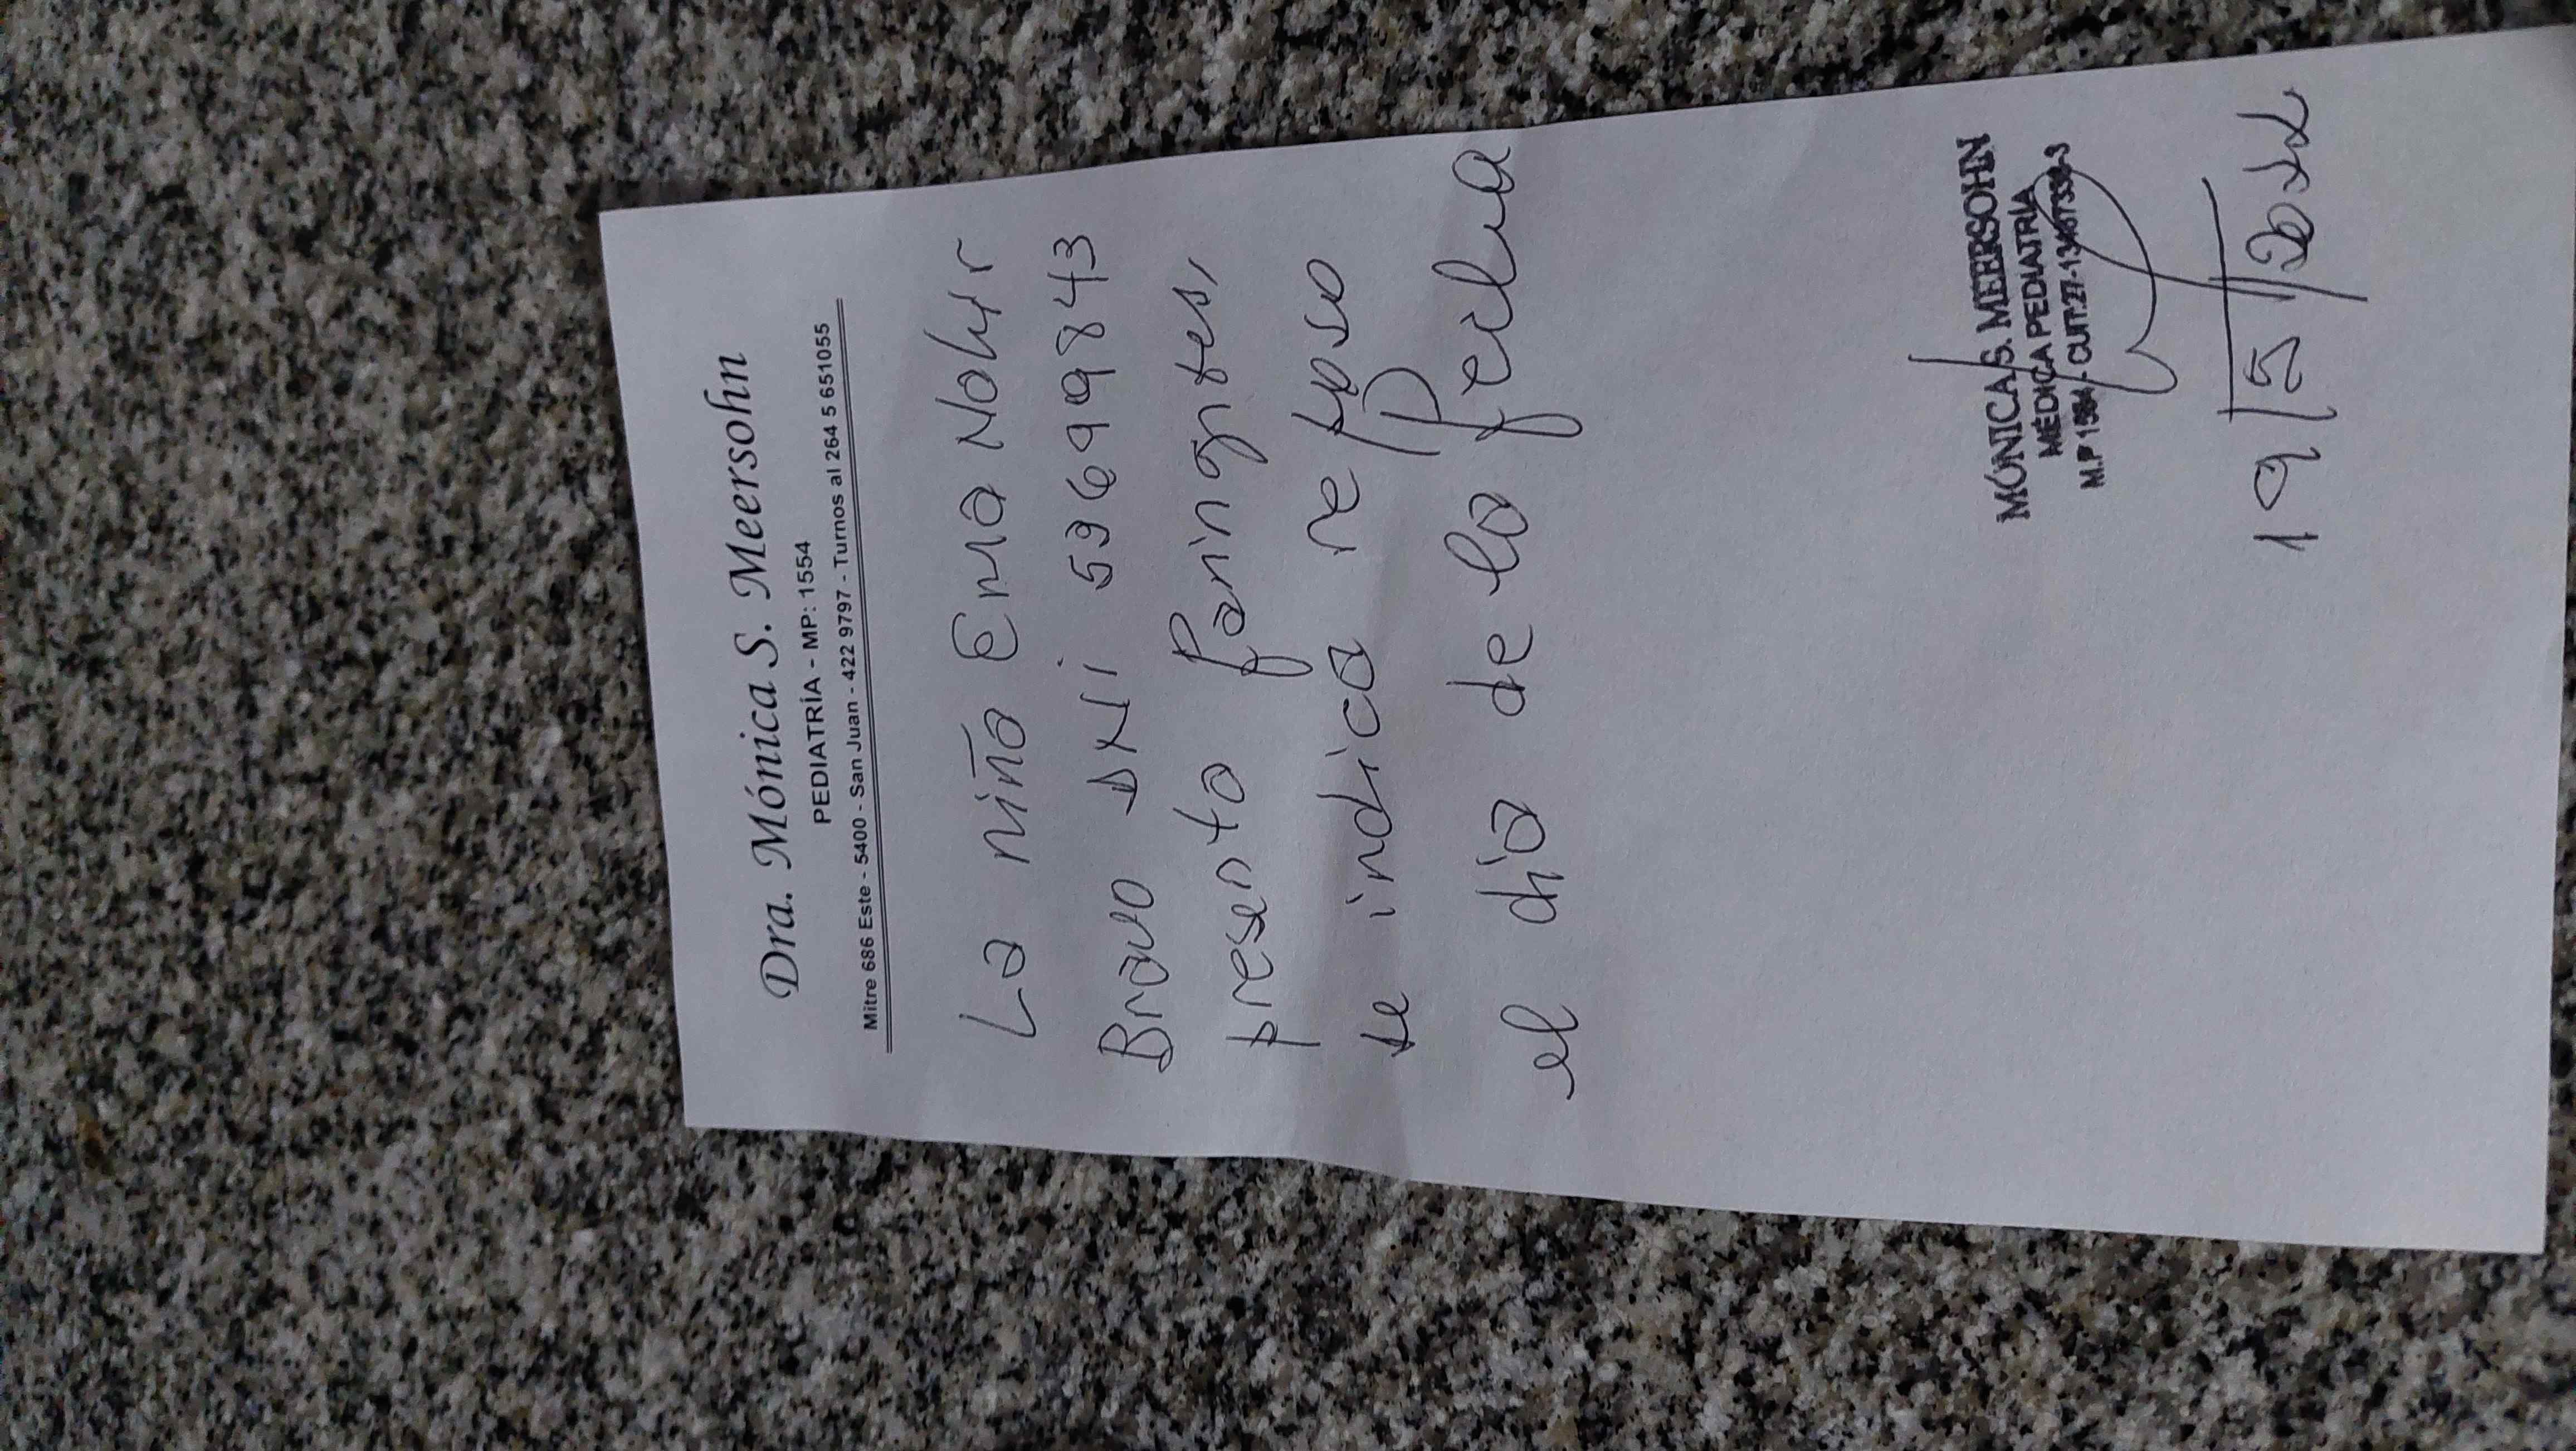 Dra. Mónica S. Meersohn
PEDIATRÍA - MP: 1554
Mitre 686 Este - 5400 - San Juan - 422 9797 - Turnos al 264 5 651055
La niña Ema Nahir
Bravo DNI 59699843
presento faringites,
se indica reposo
el dia de la fecha
MÓNICA S. MEERSOHN
MÉDICA PEDIATRÍA
M.P 1554 - CUIT:27-
19/5/